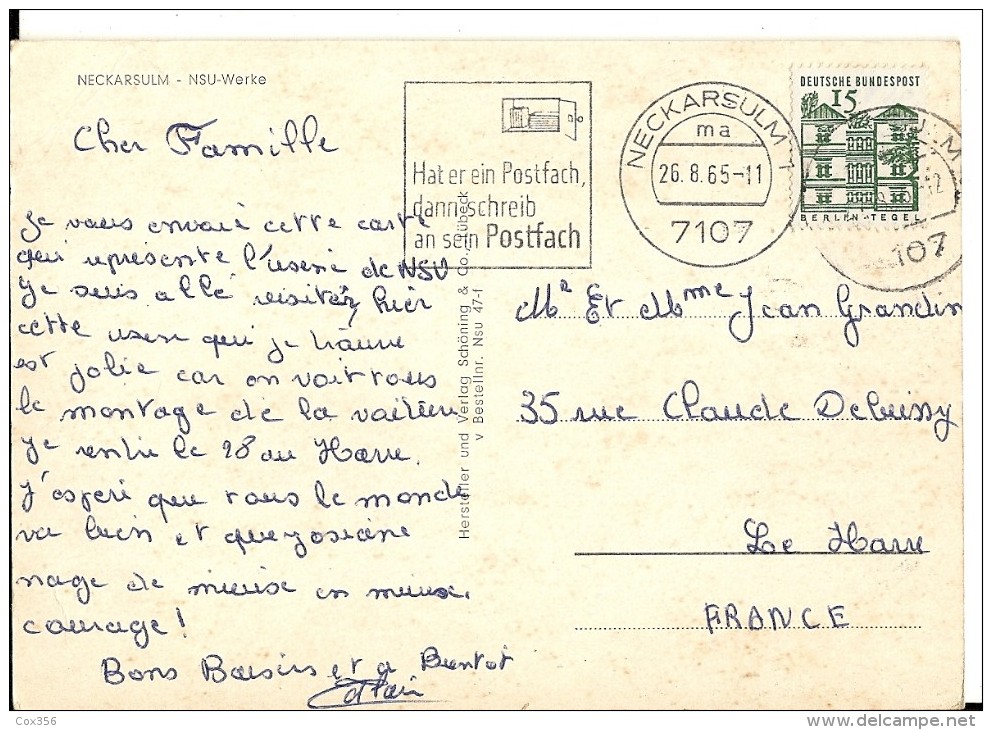 NECKARSULM - NSU-Werke
Cher Famille
Je vous envoie cette carte
qui représente l'usine de NSU
Je suis allé visiter hier
cette usine que je trouve
est jolie car on voit tous
le montage de la voiture
Je rentre le 28 au Havre.
J'espere que tous le monde
va bien et que Josiane
nage de mieux en mieux.
courage!
Bons Baisers et a Bientot
Alain
Hersteller und Verlag Schöning & Co. Lübeck
v Bestellnr. Nsu 47-f
Hat er ein Postfach,
dann schreib
an sein Postfach
NECKARSULM 1
ma
26.8.65-11
7107
DEUTSCHE BUNDESPOST
15
BERLIN-TEGEL
107
Mr Et Mme Jean Grandin
35 rue Claude Debussy
Le Havre
FRANCE
Cox356
www.delcampe.net